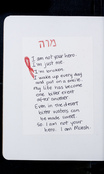 מרה
I am not your hero
I'm just me.
I'm broken
I wake up every day
and put on a smile.
My life has become
one bitter event
after another
Even in the desert
bitter waters can
be made sweet.
So I am not your
hero. I am Marah